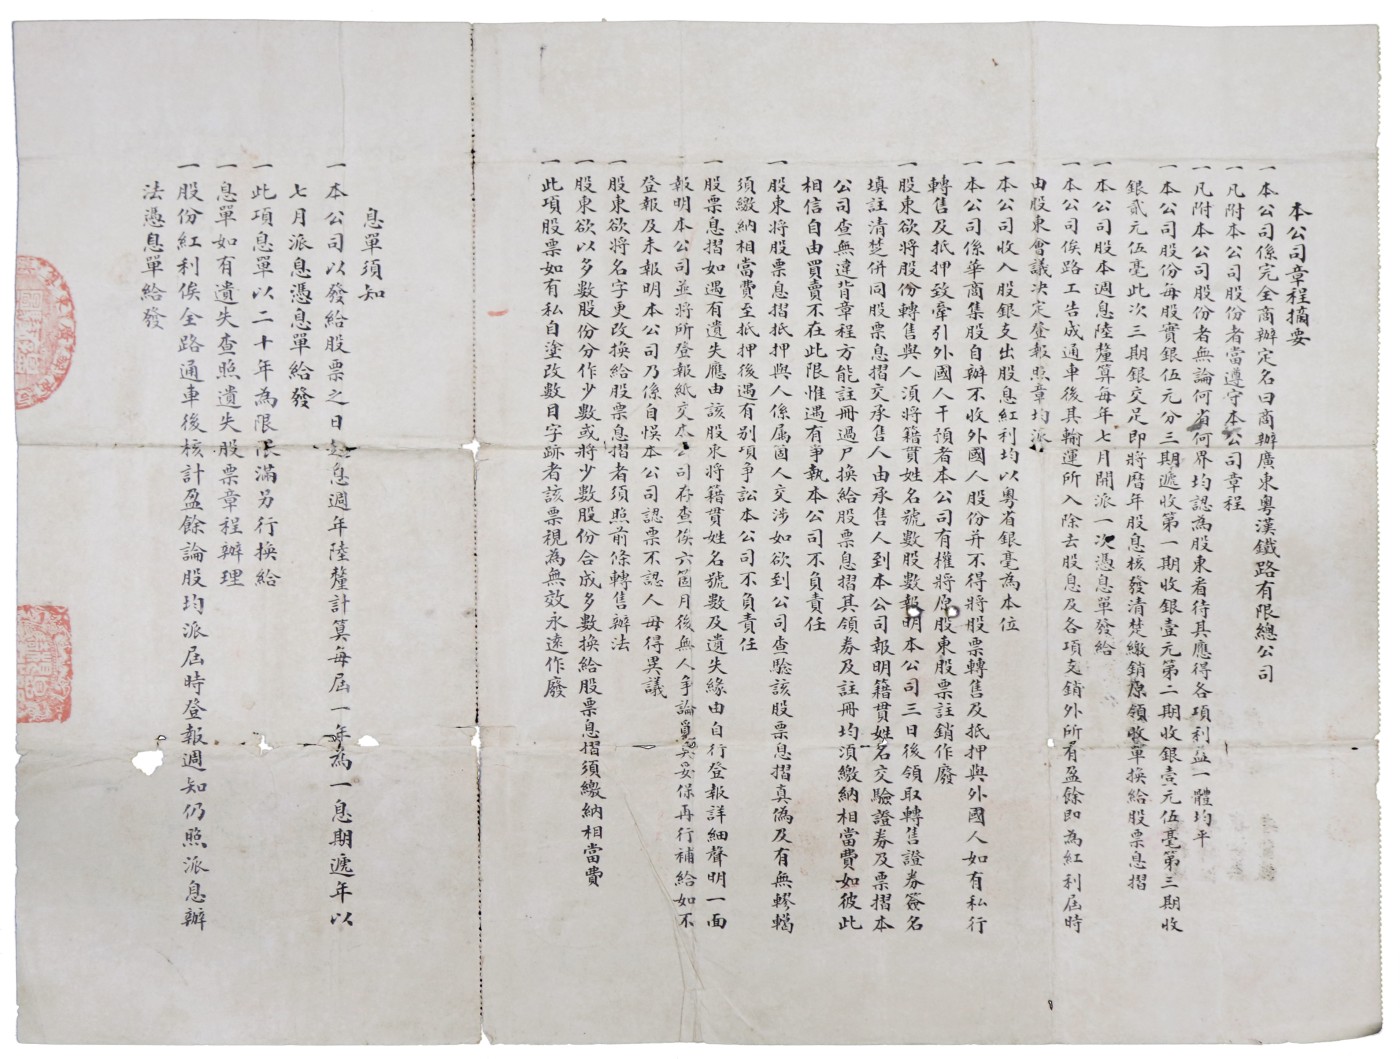 本公司章程摘要
一本公司係完全商辦定名曰商辦廣東粵漢鐵路有限總公司
一凡附本公司股份者當遵守本公司章程
一凡附本公司股份者無論何省何界均認為股東看待其應得各項利益一體均平
一本公司股份每股實銀伍元分三期遞收第一期收銀壹元第二期收銀壹元伍毫第三期收
銀貳元伍毫此次三期銀交足即將曆年股息核發清楚繳銷原領收單換給股票息摺
一本公司股本週息陸釐算每年七月開派一次憑息單發給
一本公司俟路工告成通車後其輸運所入除去股息及各項支銷外所有盈餘即為紅利屆時
由股東會議決定登報照章均派
一本公司收入股銀支出股息紅利均以粵省銀毫為本位
一本公司係華商集股自辦不收外國人股份并不得將股票轉售及抵押與外國人如有私行
轉售及抵押致牽引外國人干預者本公司有權將原股東股票註銷作廢
一股東欲將股份轉售與人須將籍貫姓名號數股數報明本公司三日後領取轉售證券簽名
填註清楚併同股票息摺交承售人由承售人到本公司報明籍貫姓名交驗證券及票摺本
公司查無違背章程方能註冊過戶換給股票息摺其領券及註冊均須繳納相當費如彼此
相信自由買賣不在此限惟遇有爭執本公司不負責任
一股東將股票息摺抵押與人係屬箇人交涉如欲到公司查驗該股票息摺真偽及有無轇轕
須繳納相當費至抵押後遇有別項爭訟本公司不負責任
一股票息摺如遇有遺失應由該股東將籍貫姓名號數及遺失緣由自行登報詳細聲明一面
報明本公司並將所登報紙交本公司存查俟六箇月後無人爭論覓具妥保再行補給如不
登報及未報明本公司乃係自悞本公司認票不認人毋得異議
一股東欲將名字更改換給股票息摺者須照前條轉售辦法
一股東欲以多數股份分作少數或將少數股份合成多數換給股票息摺須繳納相當費
一此項股票如有私自塗改數目字跡者該票視為無效永遠作廢
息單須知
一本公司以發給股票之日起息週年陸釐計算每屆一年為一息期遞年以
七月派息憑息單給發
一此項息單以二十年為限限滿另行換給
一息單如有遺失查照遺失股票章程辦理
一股份紅利俟全路通車後核計盈餘論股均派屆時登報週知仍照派息辦
法憑息單給發